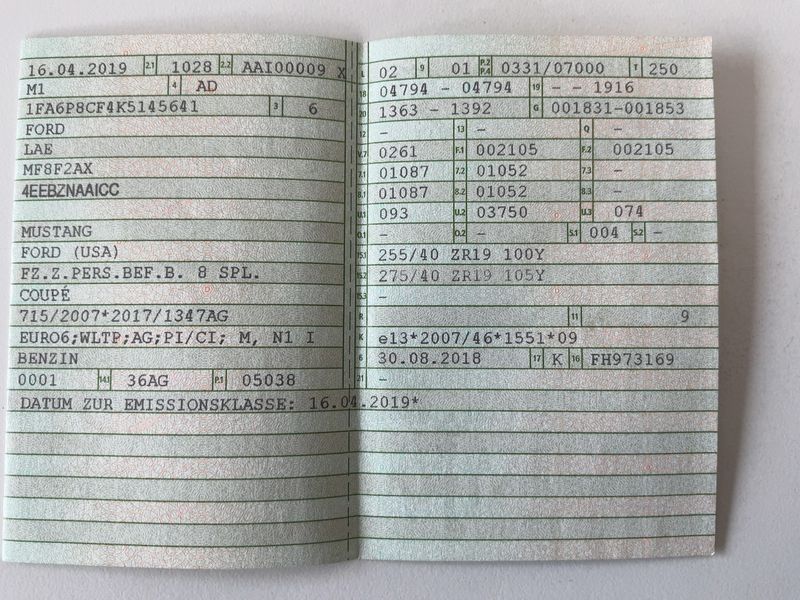 16.04.2019 2.1 1028 2.2 AAI00009 X
M1 4 AD
1FA6P8CF4K5145641 3 6
FORD
LAE
MF8F2AX
4EEBZNAAICC
MUSTANG
FORD (USA)
FZ.Z.PERS.BEF.B. 8 SPL.
COUPÉ
715/2007*2017/1347AG
EURO6;WLTP;AG;PI/CI; M, N1 I
BENZIN
0001 14.1 36AG P.1 05038
DATUM ZUR EMISSIONSKLASSE: 16.04.2019*
L 02 9 01 P.2 P.4 0331/07000 T 250
18 04794 - 04794 19 - - 1916
20 1363 - 1392 G 001831-001853
12 - 13 - Q -
V.7 0261 F.1 002105 F.2 002105
7.1 01087 7.2 01052 7.3 -
8.1 01087 8.2 01052 8.3 -
U.1 093 U.2 03750 U.3 074
O.1 - O.2 - S.1 004 S.2 -
15.1 255/40 ZR19 100Y
15.2 275/40 ZR19 105Y
15.3 -
R 11 9
K e13*2007/46*1551*09
6 30.08.2018 17 K 16 FH973169
21 -